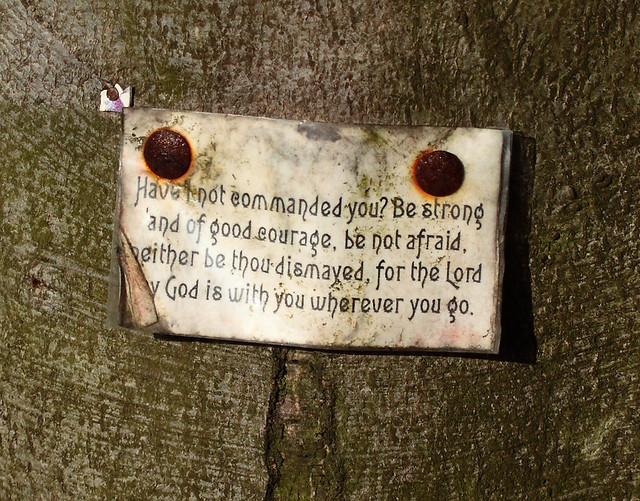 Have I not commanded you? Be strong
and of good courage, be not afraid,
neither be thou dismayed, for the Lord
y God is with you wherever you go.